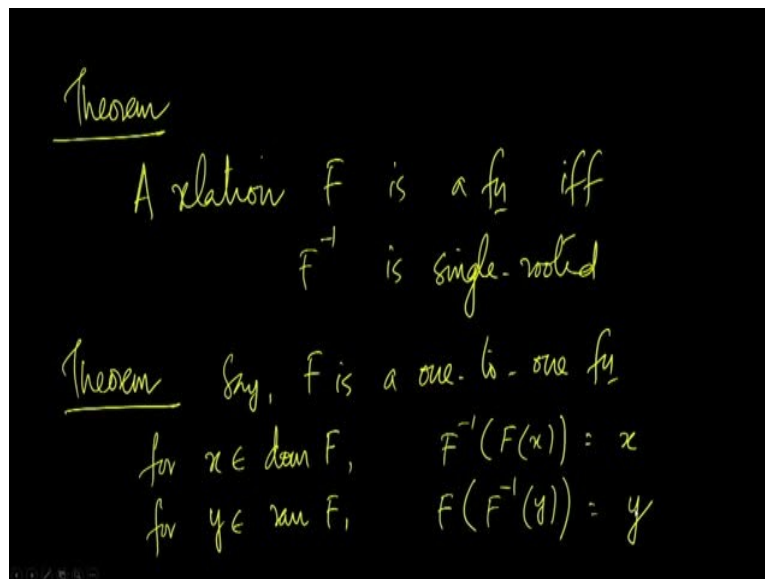 Theorem
A relation F is a fn iff
F⁻¹ is single-rooted
Theorem Say, F is a one-to-one fn
for x ∈ dom F, F⁻¹(F(x)) = x
for y ∈ ran F, F(F⁻¹(y)) = y